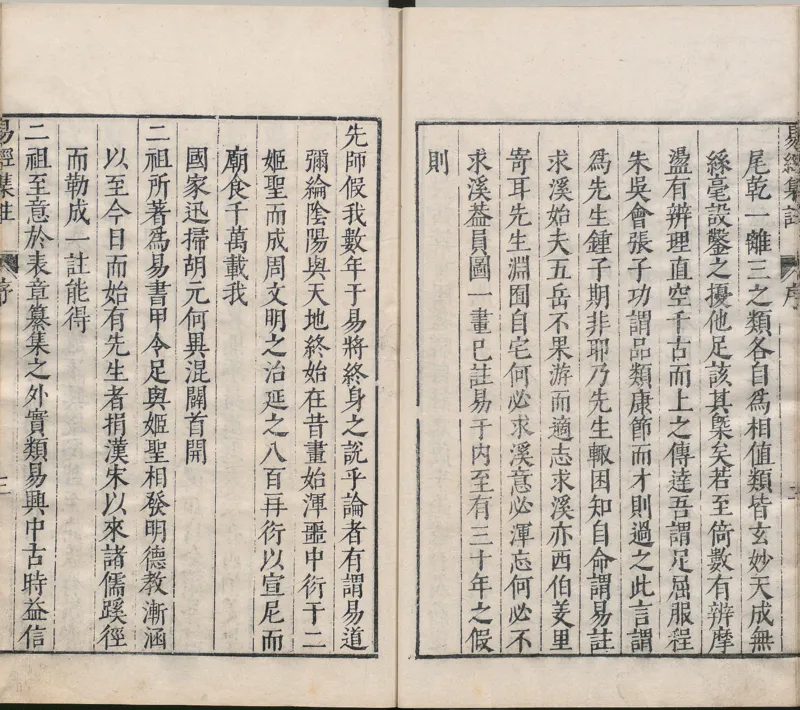 易經集註 序 三
尾乾一離三之類各自爲相值類皆玄妙天成無
絲毫設鑿之擾他足該其槩矣若至倚數有辨摩
盪有辨理直空千古而上之傳達吾謂足屈服程
朱吳會張子功謂品類康節而才則過之此言謂
爲先生鍾子期非耶乃先生輙困知自命謂易註
求溪始夫五岳不果游而適志求溪亦西伯羑里
寄耳先生淵囿自宅何必求溪意必渾忘何必不
求溪葢員圖一畫已註易于內至有三十年之假
則
先師假我數年于易將終身之說乎論者有謂易道
彌綸陰陽與天地終始在昔畫始渾噩中衍于二
姬聖而成周文明之治延之八百再衍以宣尼而
廟食千萬載我
國家迅掃胡元何異混闢首開
二祖所著爲易書甲令足與姬聖相發明德教漸涵
以至今日而始有先生者捐漢宋以來諸儒蹊徑
而勒成一註能得
二祖至意於表章纂集之外實類易興中古時益信
易經集註 序 三